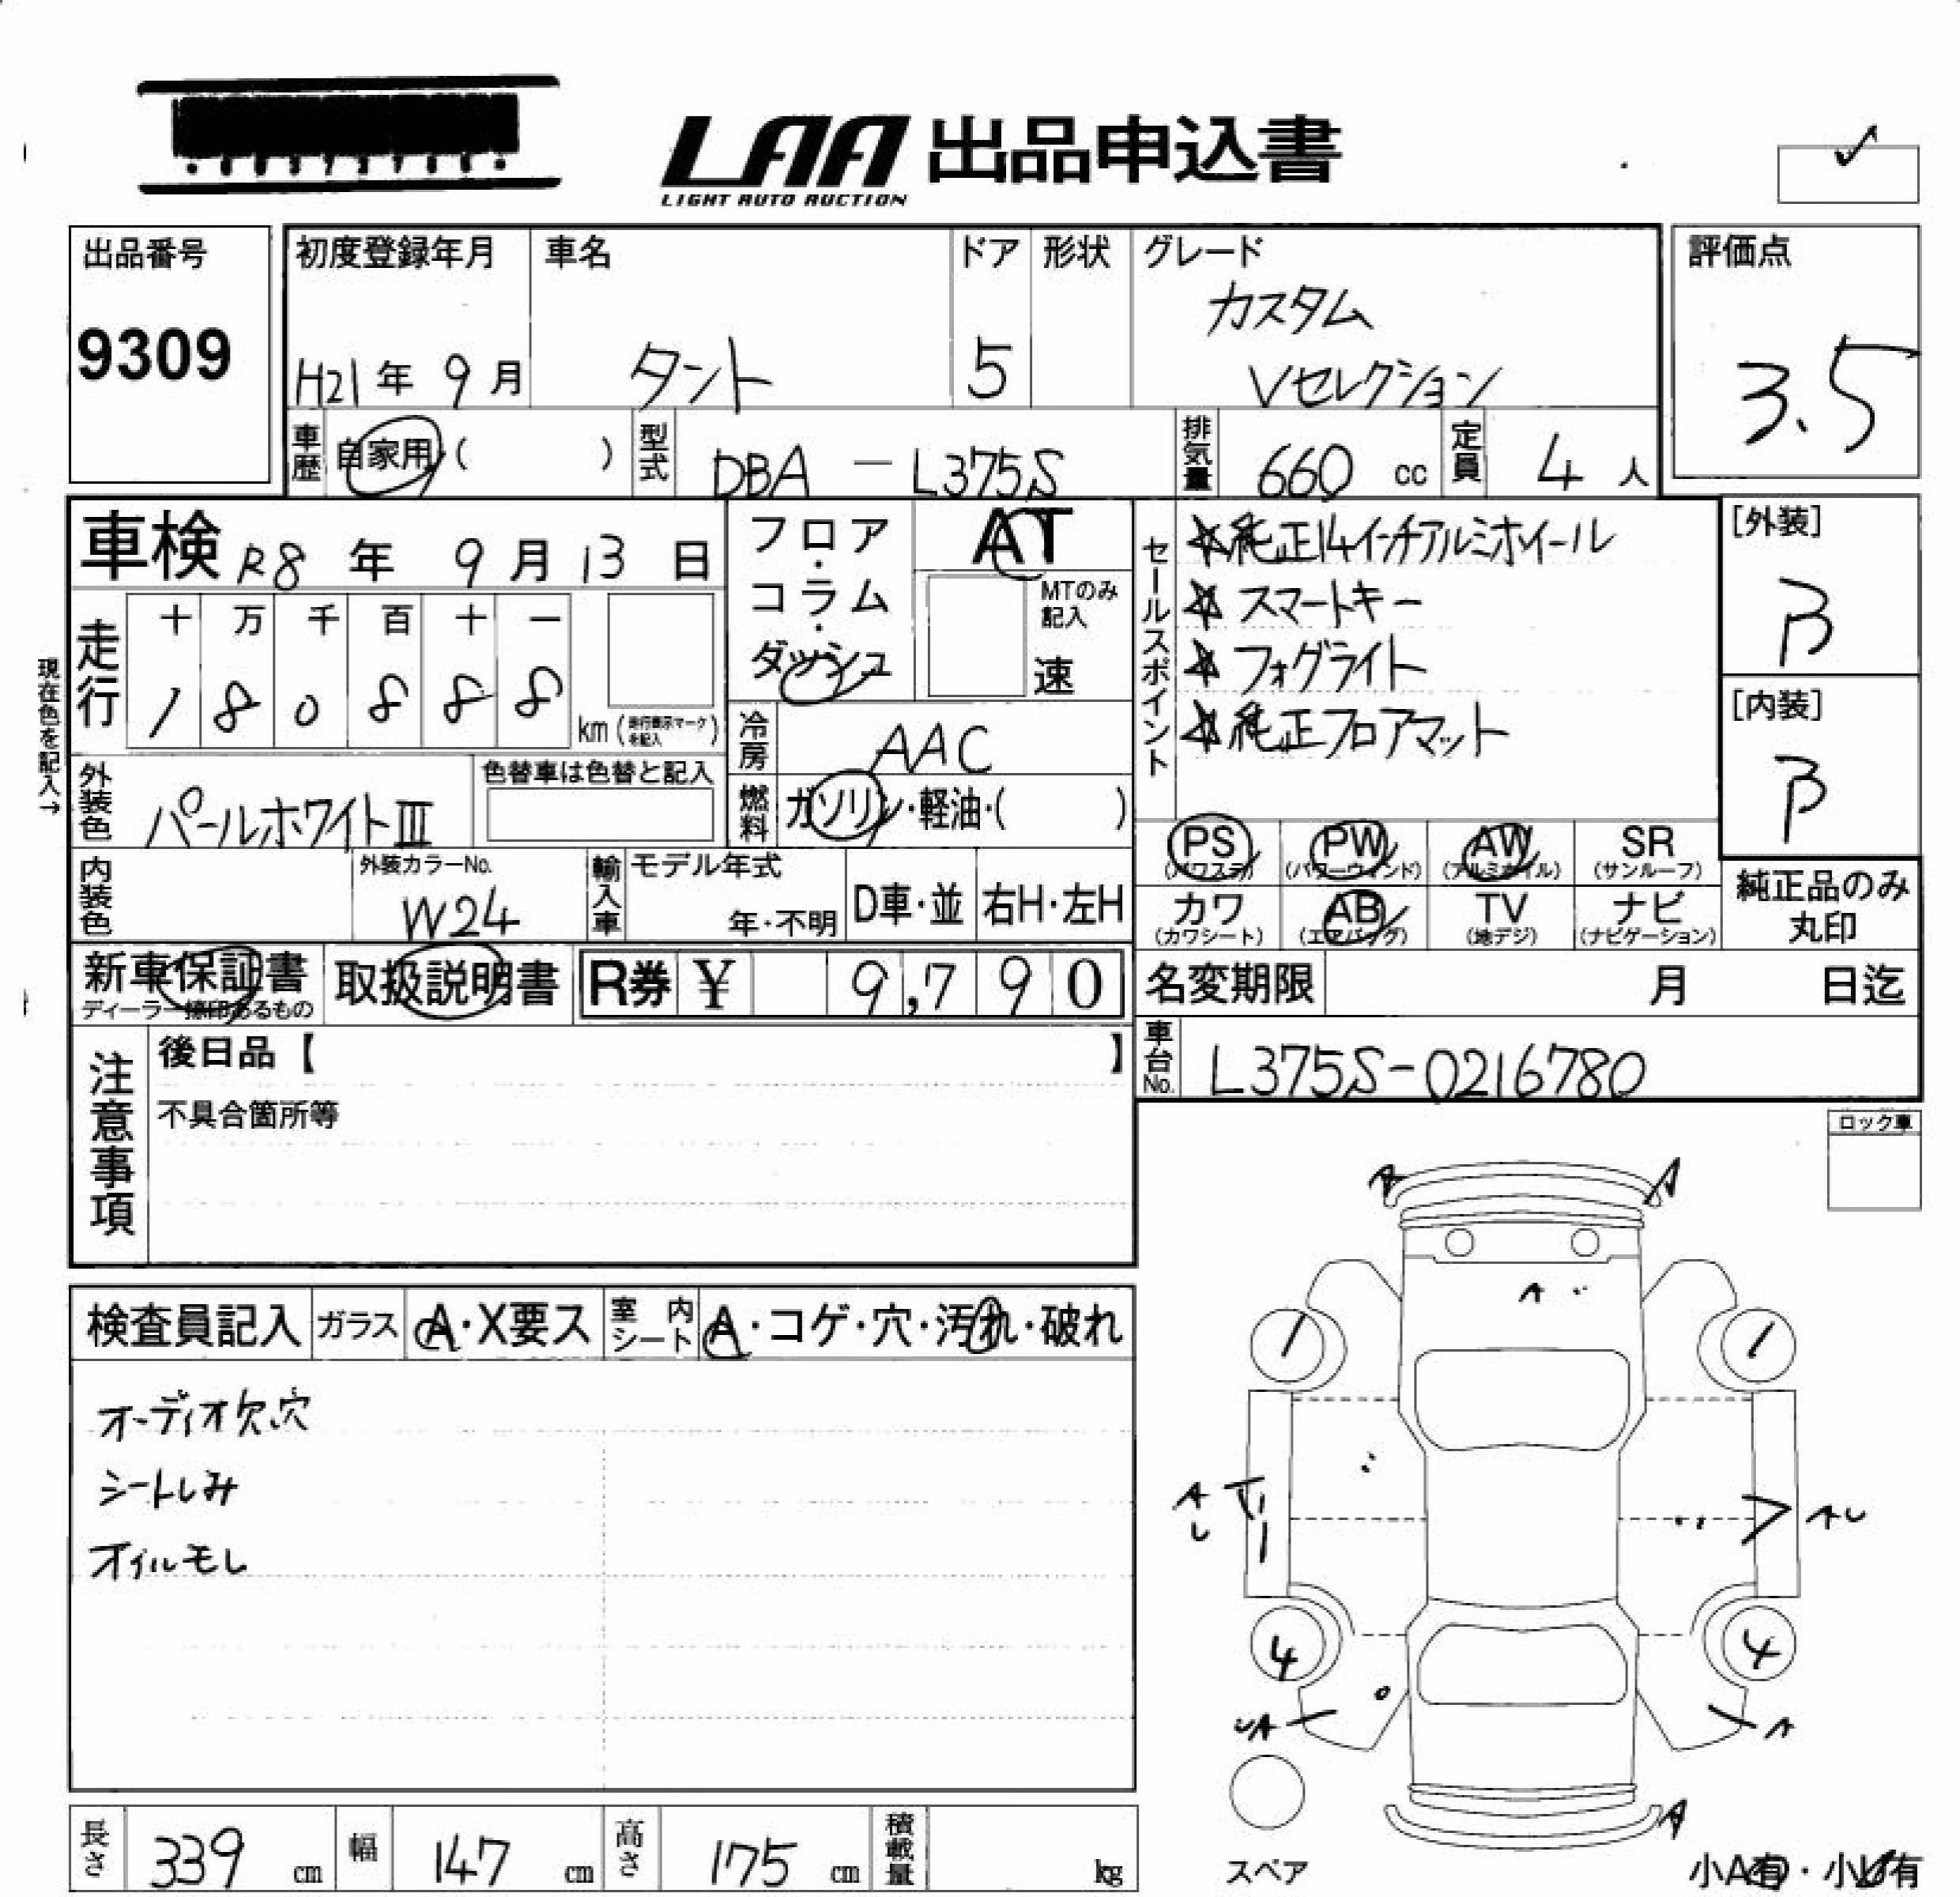 LAA 出品申込書
LIGHT AUTO AUCTION
出品番号
9309
初度登録年月
H21年 9月
車名
タント
ドア
5
形状
グレード
カスタム
Vセレクション
評価点
3.5
車歴 自家用( )
型式 DBA - L375S
排気量 660 cc
定員 4 人
車検 R8 年 9 月 13 日
現在色を記入→
走行
十 万 千 百 十 一
1 8 0 8 8 8
km(走行表示マークを記入)
フロア・コラム・ダッシュ
AT
MTのみ記入
速
冷房 AAC
燃料 ガソリン・軽油・( )
外装色 パールホワイトIII
色替車は色替と記入
内装色
外装カラーNo.
W24
輸入車
モデル年式
年・不明
D車・並
右H・左H
セールスポイント
☆純正14インチアルミホイール
☆スマートキー
☆フォグライト
☆純正フロアマット
[外装]
B
[内装]
B
PS (パワステ)
PW (パワーウィンド)
AW (アルミホイル)
SR (サンルーフ)
カワ (カワシート)
AB (エアバッグ)
TV (地デジ)
ナビ (ナビゲーション)
純正品のみ丸印
新車保証書
ディーラー捺印あるもの
取扱説明書
R券 ¥ 9,790
名変期限 月 日迄
車台No. L375S-0216780
注意事項
後日品【 】
不具合箇所等
ロック車
検査員記入
ガラス A・X要ス
室内シート A・コゲ・穴・汚れ・破れ
オーディオ欠、穴
シートしみ
オイルモレ
A A
A
1 1
A U
A U
4 4
UA A
A
スペア
小A有・小U有
長さ 339 cm
幅 147 cm
高さ 175 cm
積載量 kg